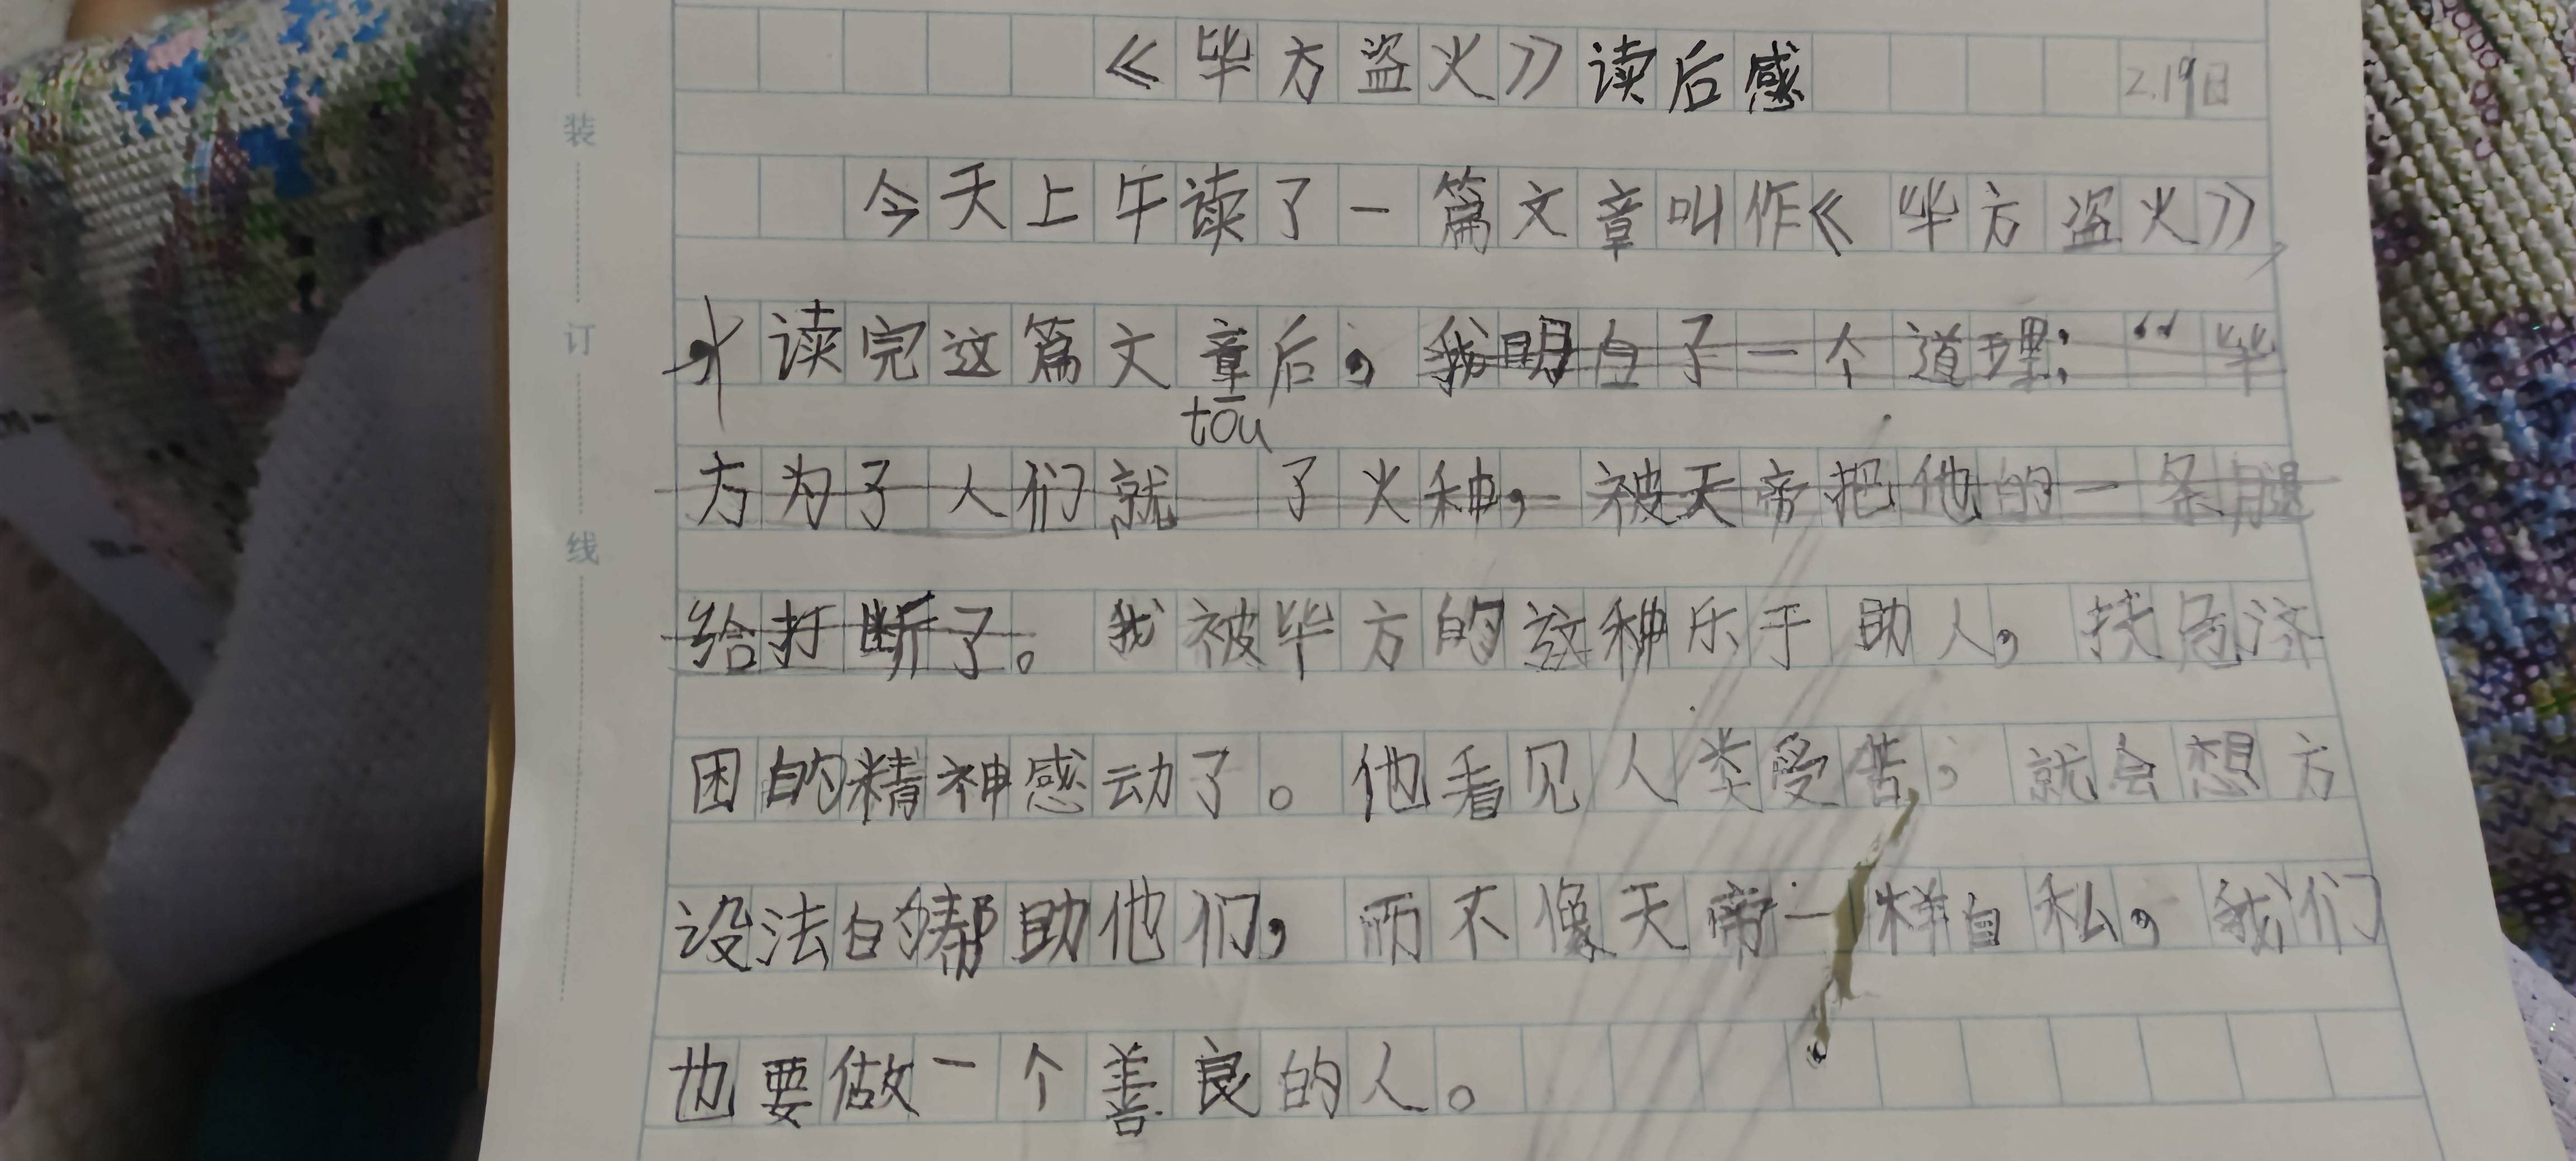 《毕方盗火》读后感 2.19日
今天上午读了一篇文章叫作《毕方盗火》,
读完这篇文章后，我明白了一个道理：“毕
tōu
方为了人们就 了火种，被天帝把他的一条腿
给打断了。我被毕方的这种乐于助人，扶危济
困的精神感动了。他看见人类受苦，就会想方
设法的帮助他们，而不像天帝一样自私，我们
也要做一个善良的人。
装
订
线